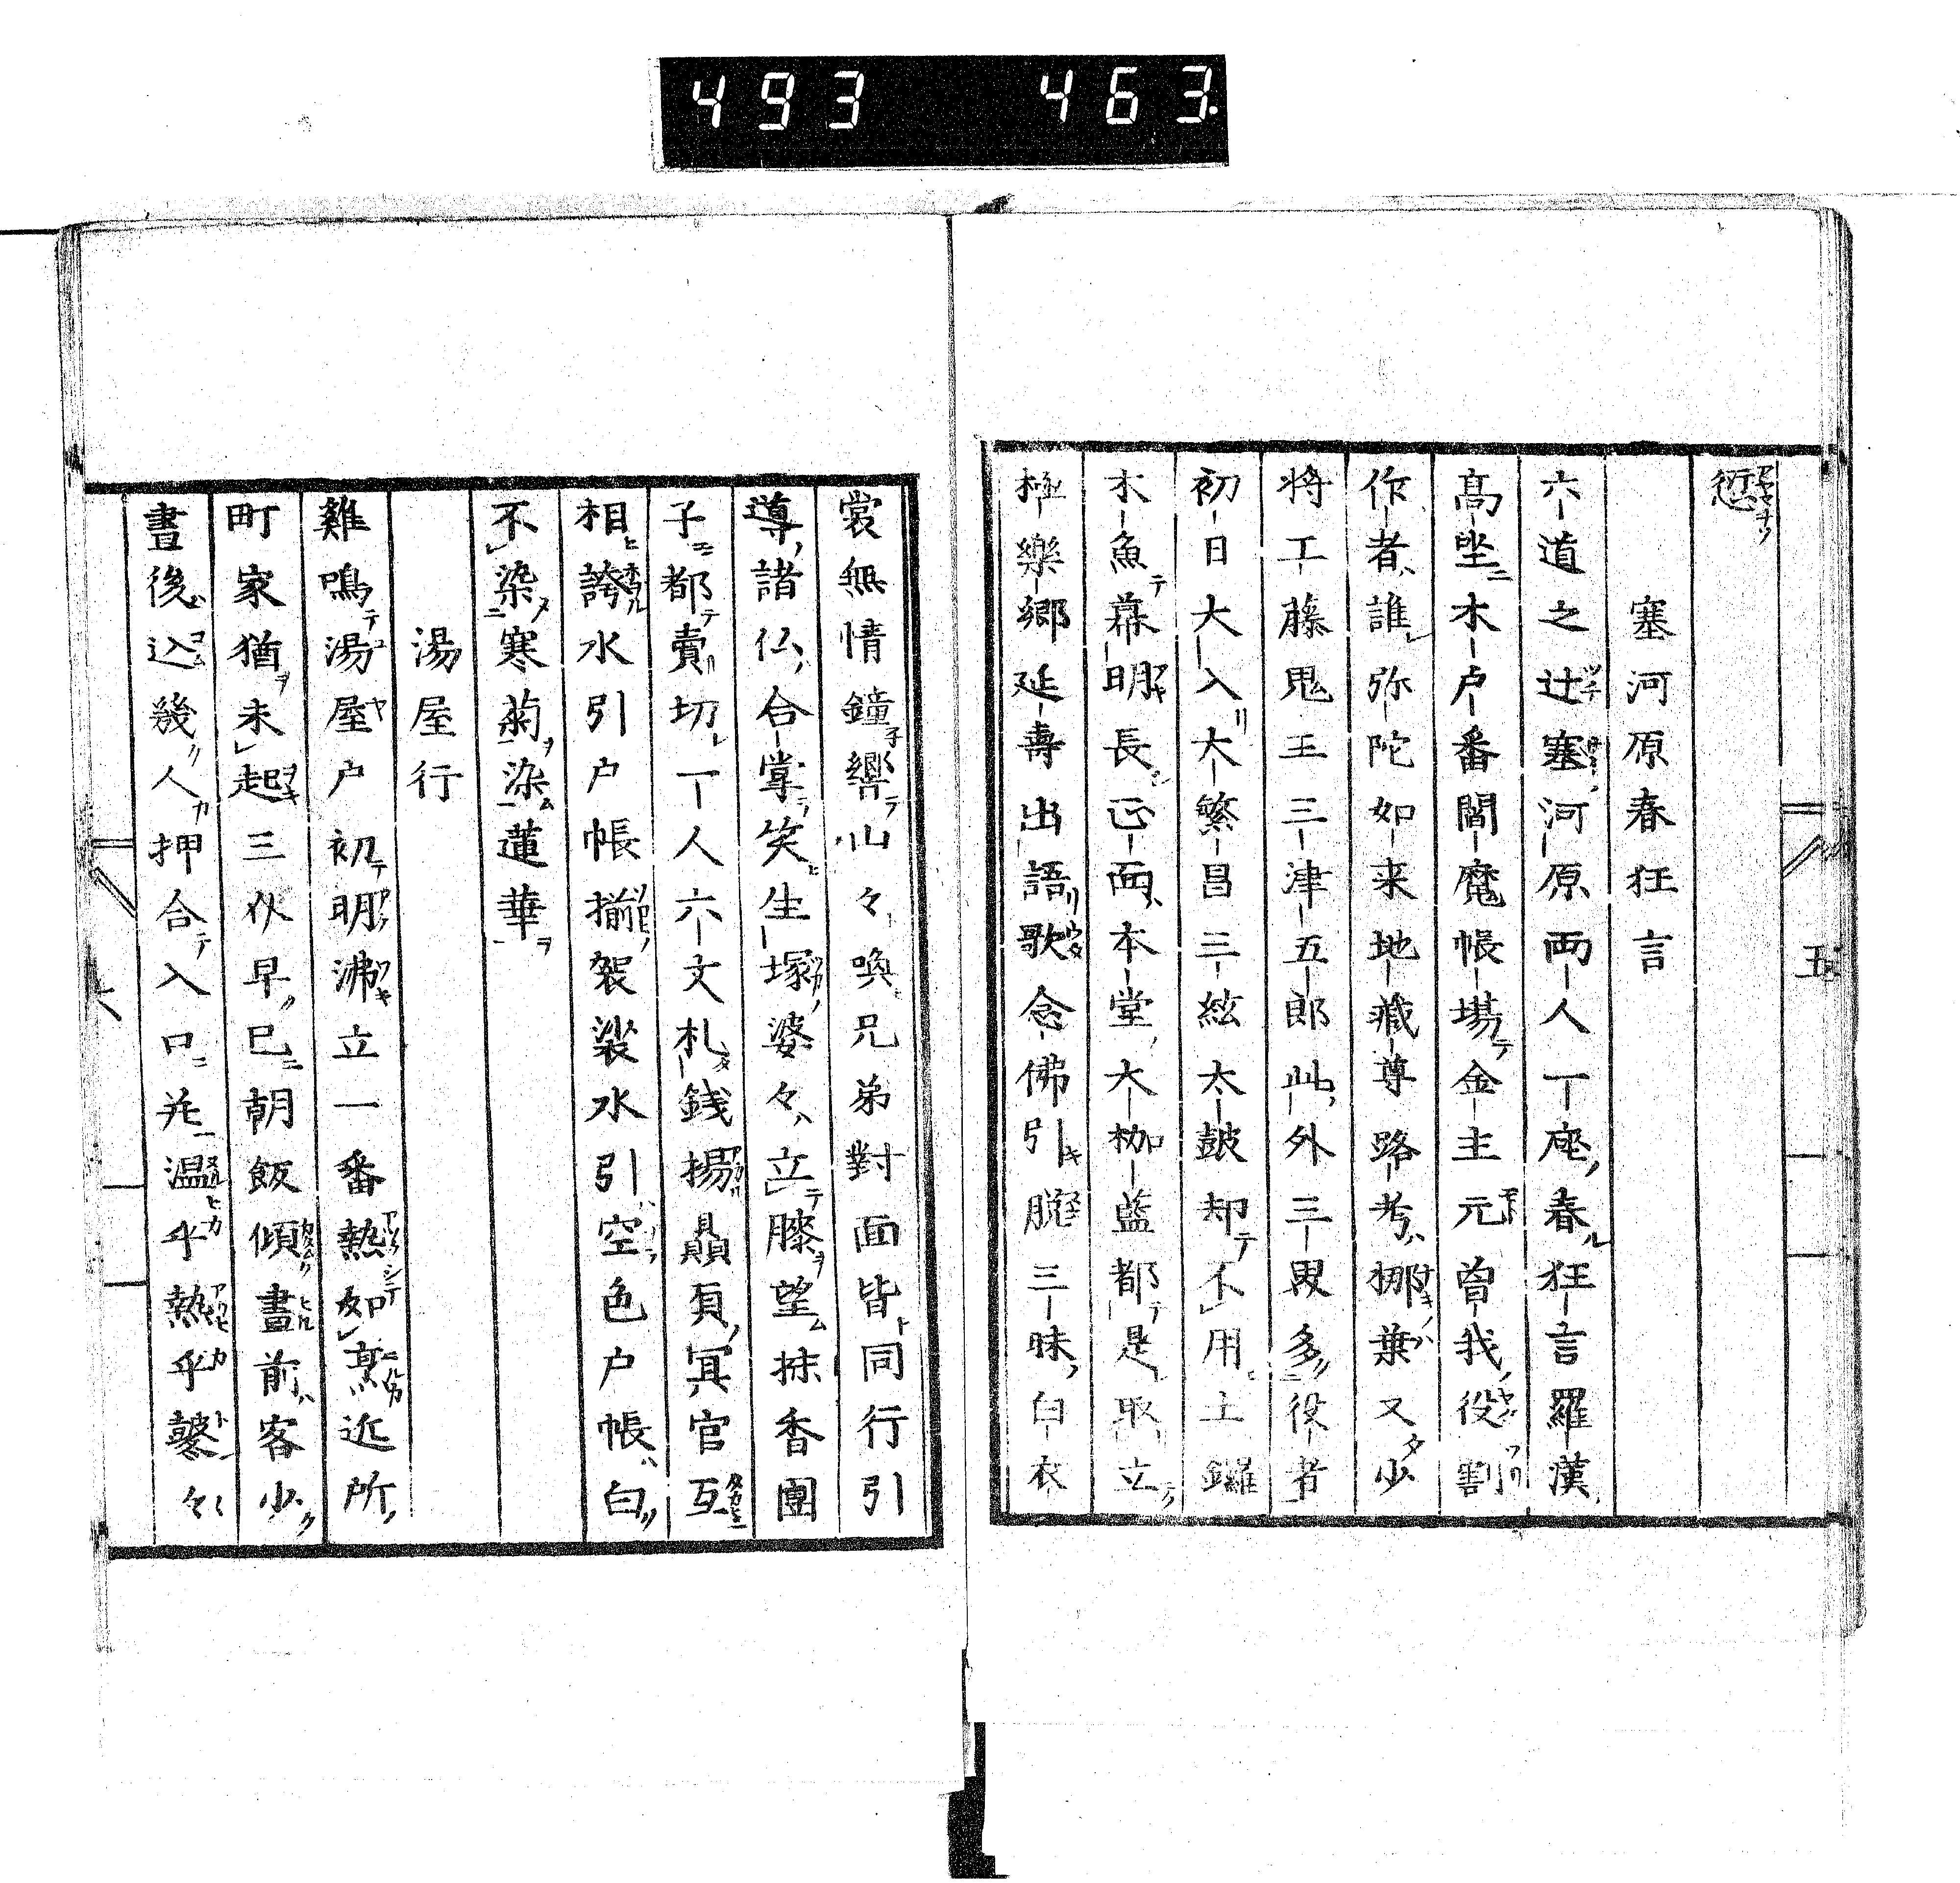 493 463
五
愆
塞河原春狂言
六道之辻塞河原両人一座春狂言羅漢
高坐木戸番閻魔帳場金主元曽我役割
作者誰弥陀如来地蔵尊路考梛葉又少
将工藤鬼王三津五郎此外三畏多役者
初日大入大繁昌三絃太鼓却不用土鑼
木魚幕明長正面本堂大伽藍都是取立
極樂郷延壽出語歌念佛引臑三昧白衣
裳無情鐘響山々喚兄弟對面皆同行引
導諸仏合掌笑生塚婆々立膝望抹香團
子都賣切一人六文札銭揚贔屓冥官互
相誇水引戸帳揃袈裟水引空色戸帳白
不染寒菊染蓮華
湯屋行
雞鳴湯屋戸初明沸立一番熱如烹近所
町家猶未起三伙早已朝飯傾晝前客少
晝後込幾人押合入口先温乎熱乎鼕々
六